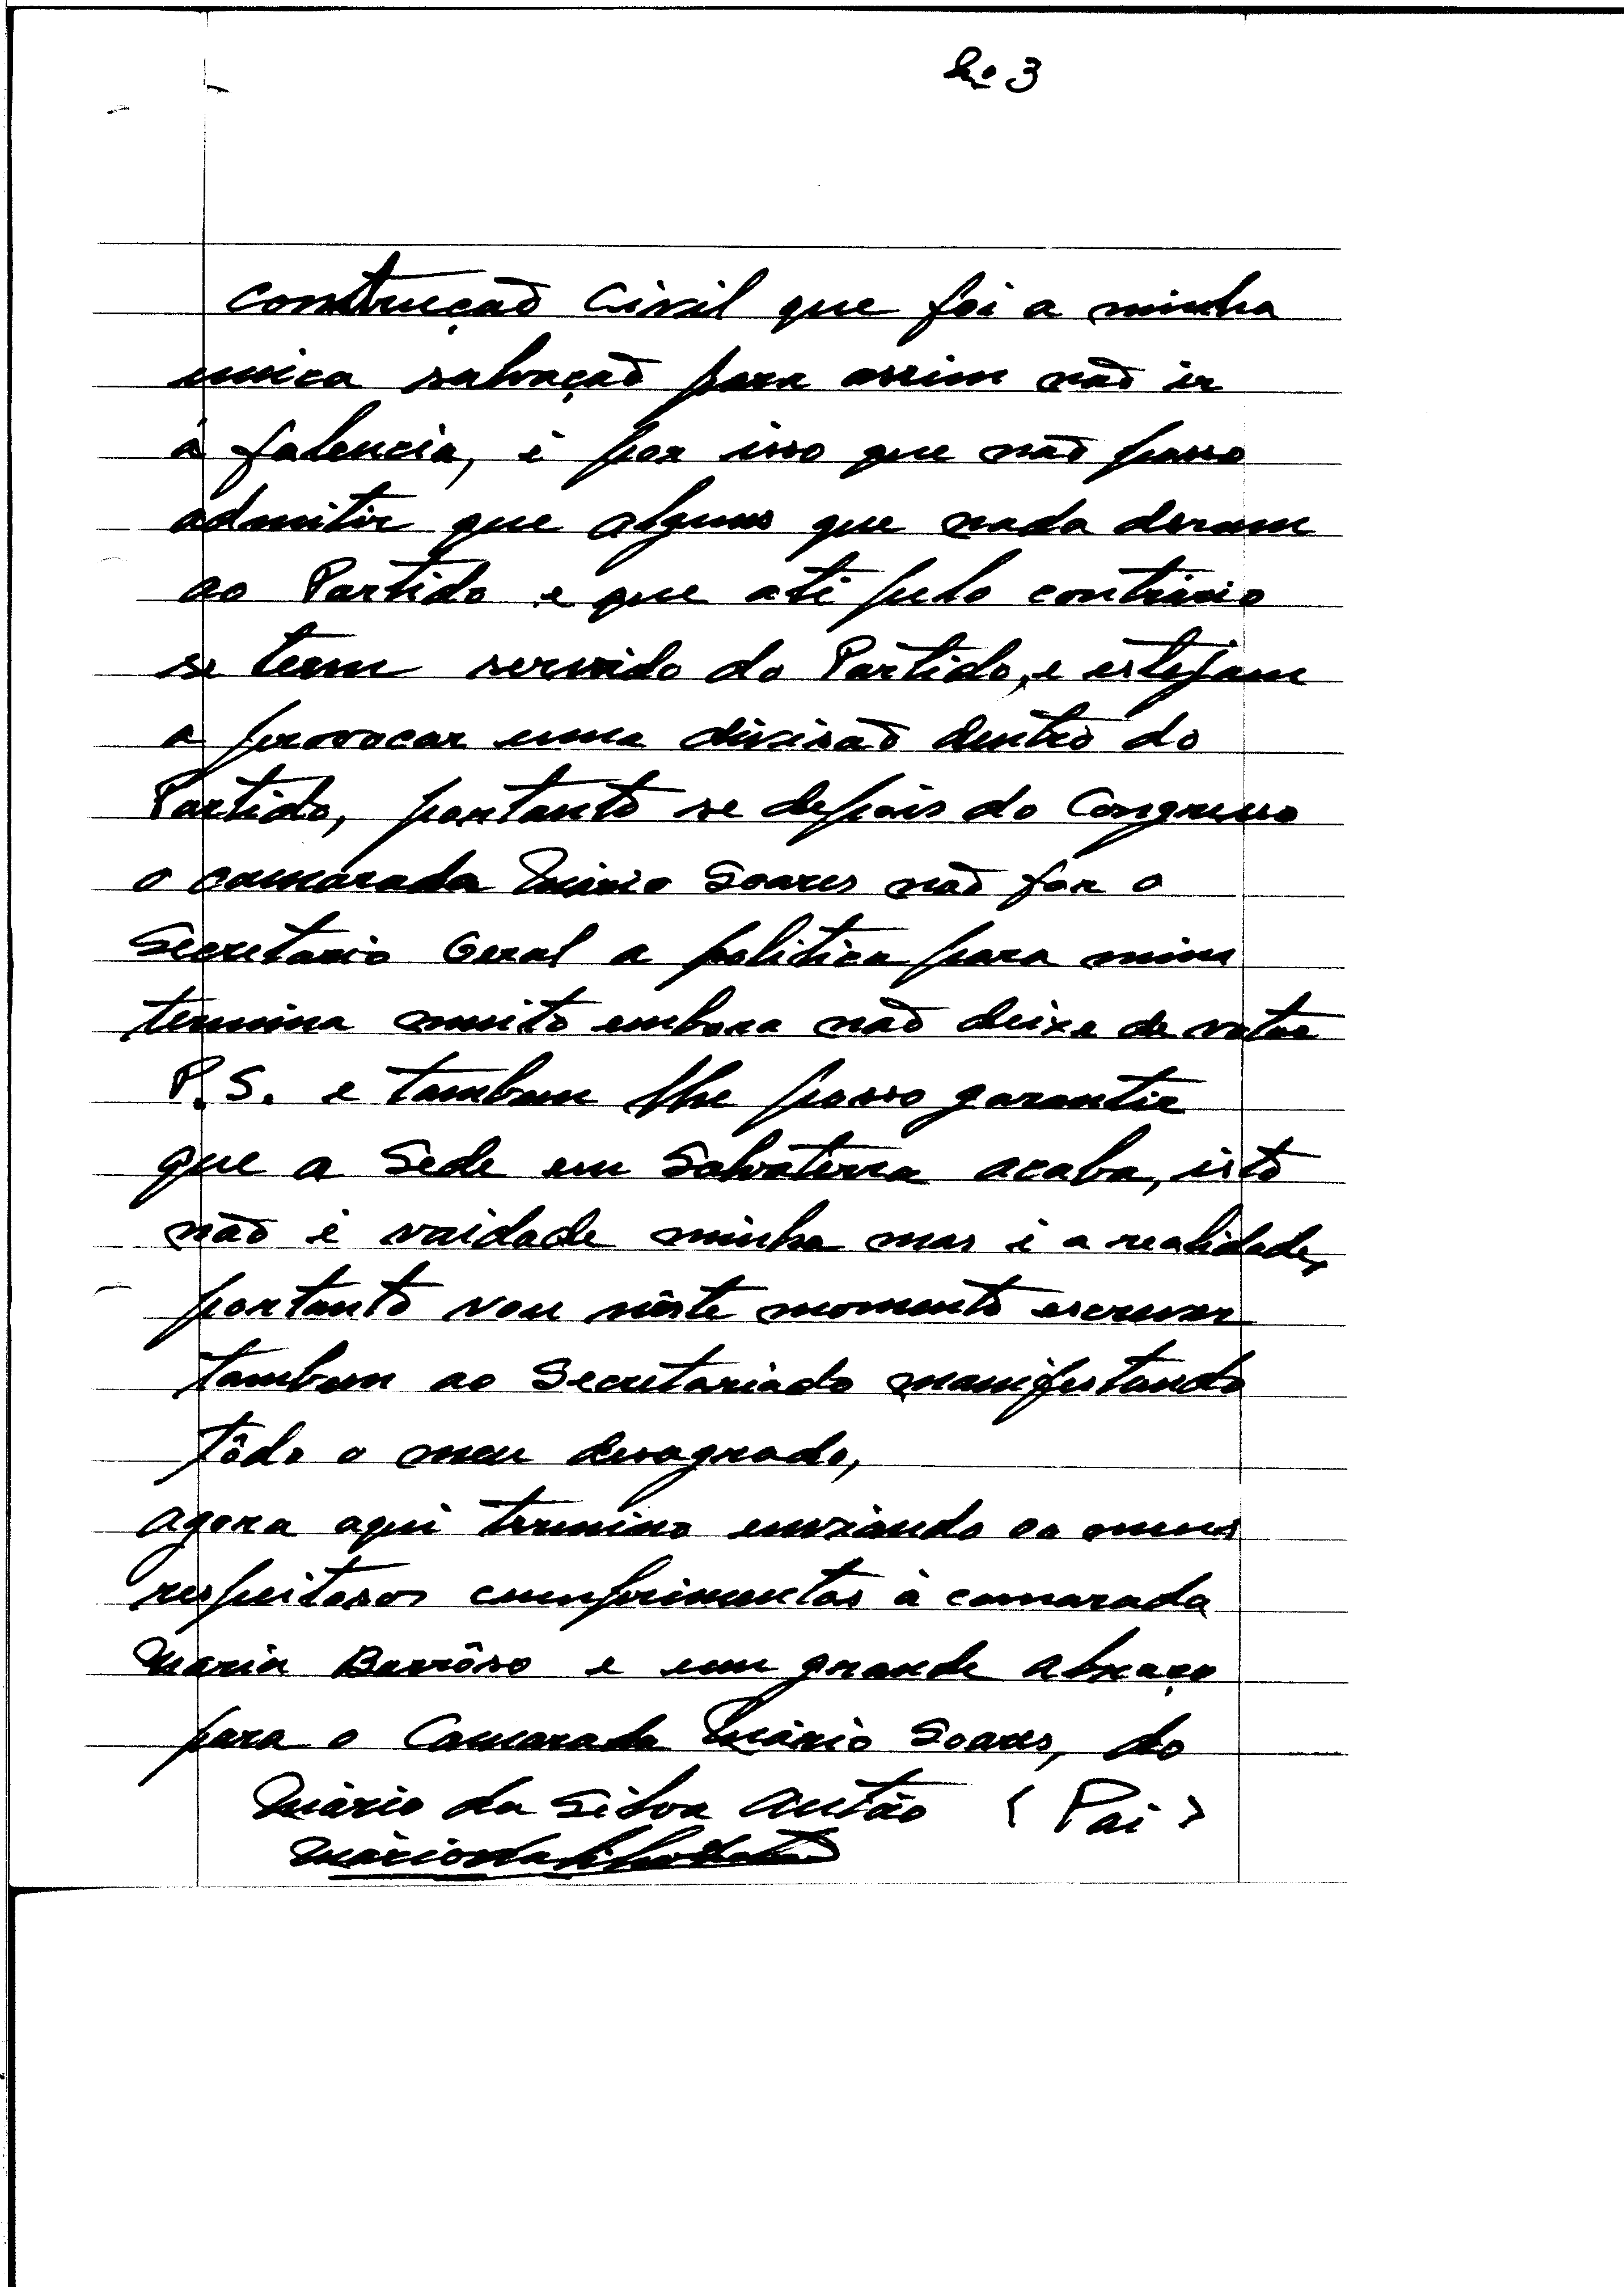 Nº 3
Contrução Civil que foi a minha
unica salvação para assim não ir
á falencia, é por isso que não posso
admitir que alguns que nada deram
ao Partido e que até pelo contrário
se tem servido do Partido, e estejam
a provocar uma divisão dentro do
Partido, portanto se depois do Congresso
o camarada Mário Soares não for o
Secretario Geral a politica para mim
termina muito embora não deixe de votar
P.S. e tambem lhe posso garantir
que a Sede em Salvaterra acaba, isto
não é vaidade minha mas é a realidade,
portanto vou nêste momento escrever
tambem ao Secretariado manifestando
tôdo o meu desagrado,
agora aqui termino enviando os meus
respeitosos cumprimentos á camarada
Maria Barrôso e um grande abraço
para o Camarada Mário Soares, do
Mário da Silva Antão (Pai)
Mário da Silva Antão